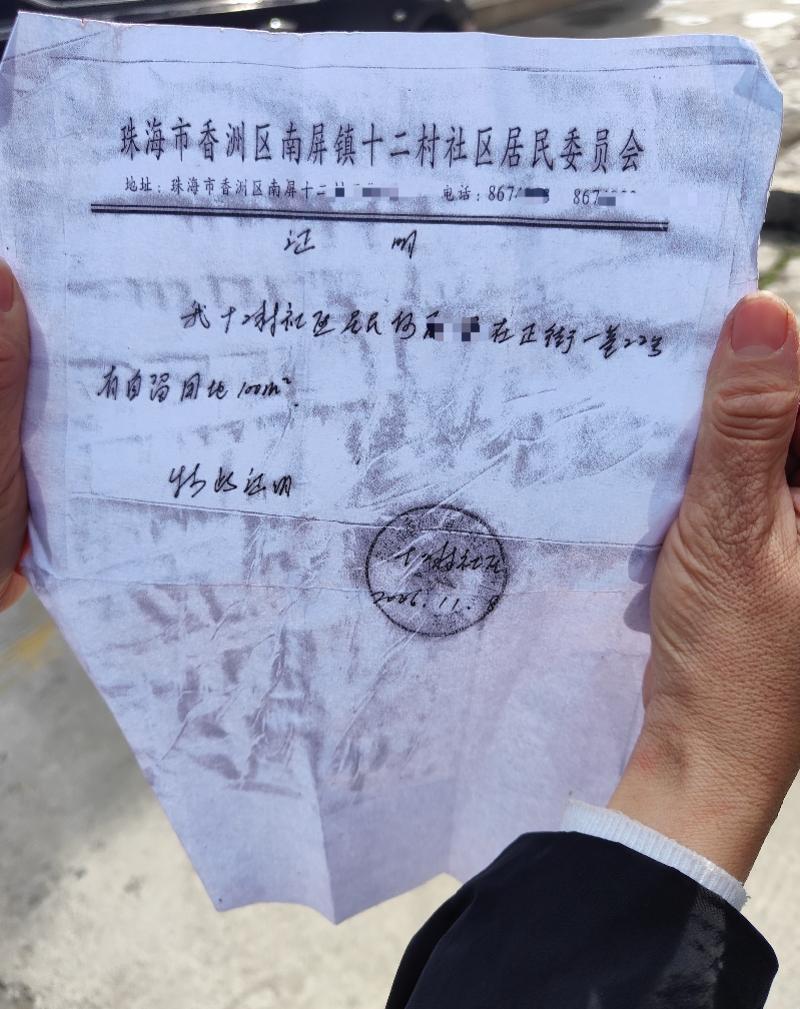 珠海市香洲区南屏镇十二村社区居民委员会
地址：珠海市香洲区南屏十二 电话：867 867
证 明
我十二村社区居民何 在正街一巷22号
有自留用地100m²
特此证明
十二村社区
2006.11.8